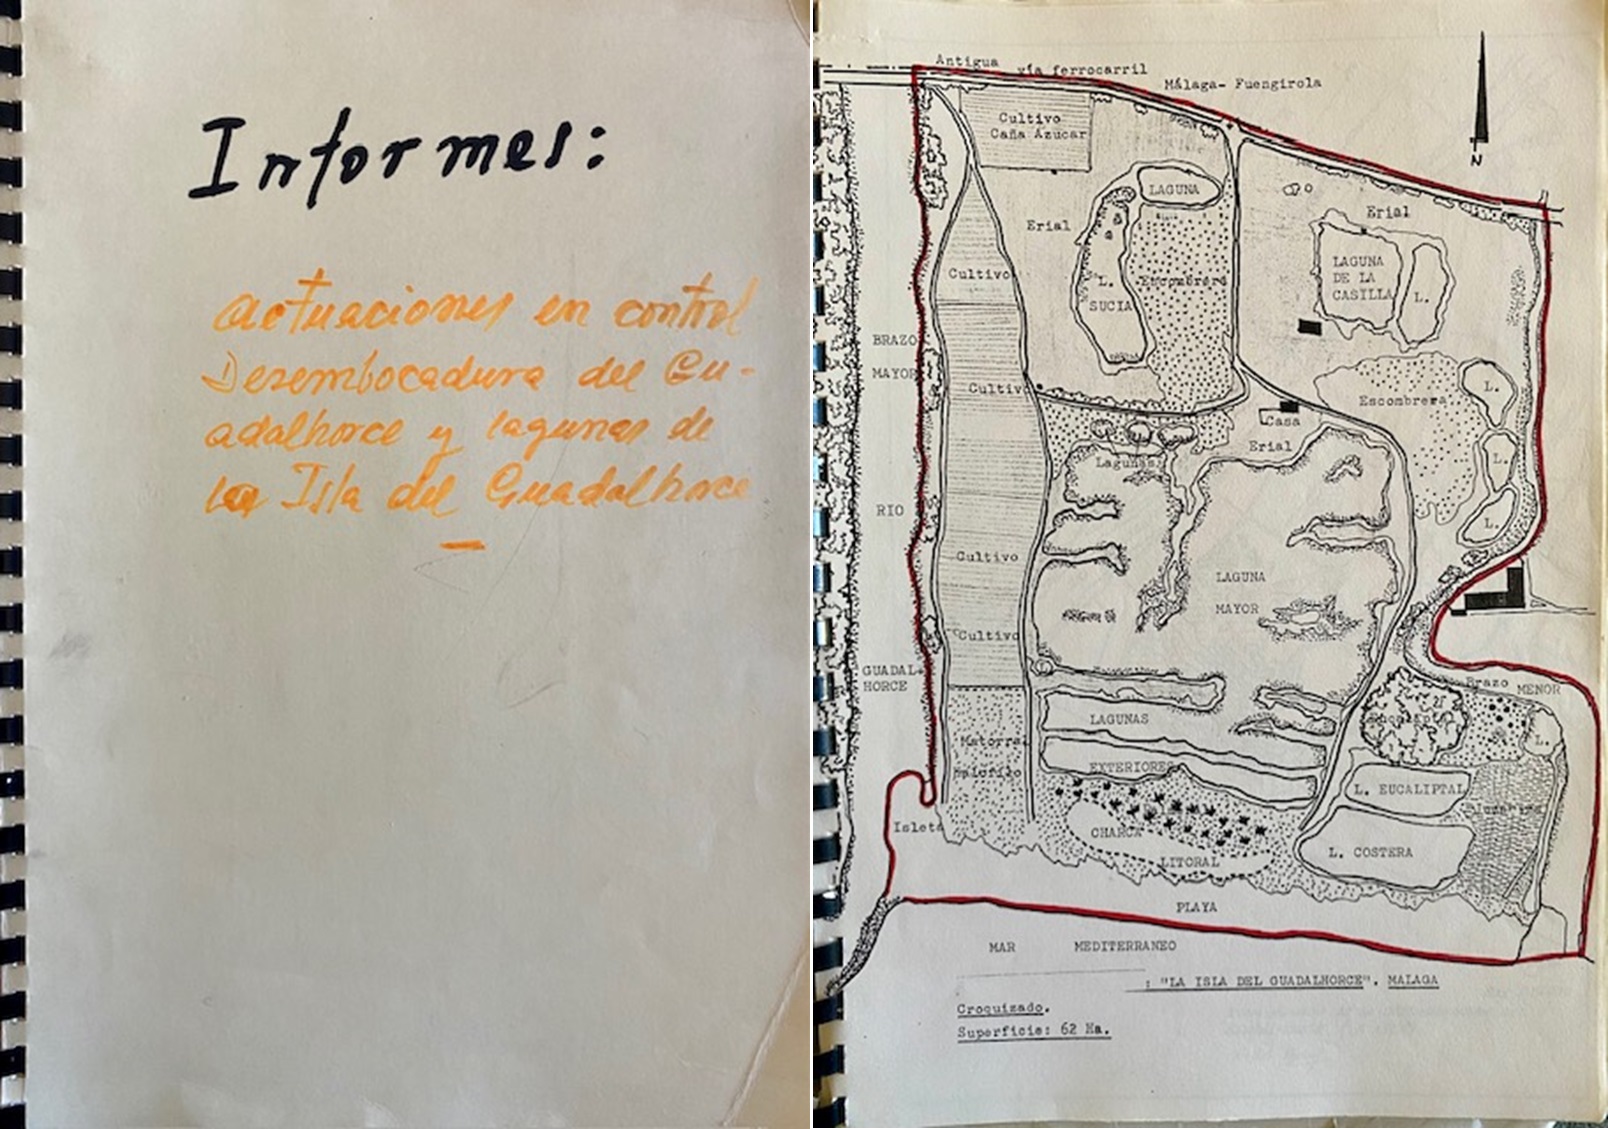 Informes:
Actuaciones en control
Desembocadura del Gu-
adalhorce y lagunas de
la Isla del Guadalhorce
Antigua vía ferrocarril
Málaga- Fuengirola
Cultivo
Caña Azucar
N
LAGUNA
Erial
Erial
LAGUNA
DE LA
CASILLA
L.
L.
SUCIA
Escombrera
Cultivo
BRAZO
MAYOR
Cultivo
Escombrera
L.
Casa
Erial
Lagunas
L.
RIO
L.
Cultivo
LAGUNA
MAYOR
Cultivo
GUADAL-
HORCE
Brazo MENOR
LAGUNAS
Eucaliptal
L.
Matorral
halófilo
EXTERIORES
L. EUCALIPTAL
Isleta
CHARCA
LITORAL
L. COSTERA
PLAYA
MAR MEDITERRANEO
: "LA ISLA DEL GUADALHORCE". MALAGA
Croquizado.
Superficie: 62 Ha.